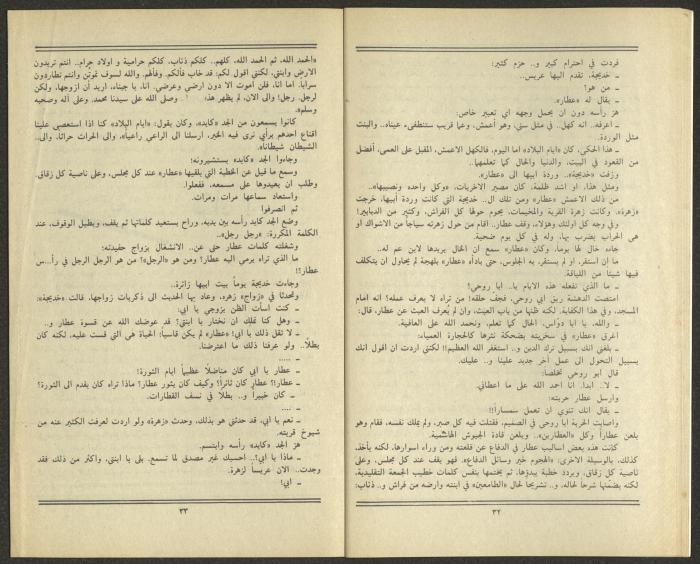 فردت في احترام كبير و.. حزم كثير:
ـ خديجة، تقدم اليها عريس..
ـ من هو؟
ـ يقال له «عطار».
هز رأسه دون ان يحمل وجهه اي تعبير خاص:
ـ اعرفه.. انه كهل.. في مثل سني، وهو أعمش، وعما قريب ستنطفىء عيناه.. والبنت
مثل الوردة.
ـ هذا الحكي، كان «ايام البلاد» اما اليوم، فالكهل الاعمش، المقبل على العمى، أفضل
من القعود في البيت، والدنيا والحال كما تعلمها..
وزفت «خديجة».. وردة ابيها الى «عطار».
ومثل هذا، او اشد ظلمة، كان مصير الاخريات، «وكل واحده ونصيبها»..
من ذلك الاعمش «عطار» ومن تلك الـ.. خديجة التي كانت وردة ابيها، خرجت
«زهرة»، وكانت زهرة القرية والمخيمات، يحوم حولها كل الفراش، وكثير من الدبابير!
وفي وجه كل اولئك وهؤلاء، وقف عطار.. أقام من حول زهرته سياجا من الاشواك او
هي الحراب يضرب بها، وله في كل يوم ضحية.
جاءه خال لها يوما، وكان «عطار» سمع ان الخال يريدها لابن عم له..
ما ان استقر، او لم يستقر، به الجلوس، حتى بادأه «عطار» بلهجة لم يحاول ان يتكلف
فيها شيئا من اللياقة.
ـ ما الذي نفعله هذه الايام يا.. ابا روحي!؟
امتصت الدهشة ريق ابي روحي، فجف حلقه! من تراه لا يعرف عمله؟ انه امام
المسجد، وفي هذا الكفاية، لكنه ظنها من باب العبث، وان لم يُعرف العبث عن عطار، قال:
ـ والله، يا ابا دوّاس، الحال كما تعلم، ونحمد الله على العافية.
اغرق «عطار» في سخريته بضحكة نثرها كالحجارة العمياء:
ـ بلغني انك بسبيل ترك الدين و.. استغفر الله العظيم!! لكنني اردت ان اقول انك
بسبيل التحول الى عمل آخر جديد علينا و.. عليك.
قال ابو روحي مخلصا:
ـ لا.. ابدا. انا احمد الله على ما اعطاني.
وارسل عطار حربته:
ـ يقال انك تنوي ان تعمل سمسارا!!
واصابت الحربة ابا روحي في الصميم، فقتلت فيه كل صبر، ولم يملك نفسه، فقام وهو
يلعن عطاراً وكل «العطارين».. ويلعن قادة الجيوش الهاشمية.
كانت هذه بعض اساليب عطار في الدفاع عن قلعته ومن وراء اسوارها، لكنه يأخذ
كذلك، بالوسيلة الاخرى: «الهجوم خير وسائل الدفاع»، فهو يقف عند كل مجلس، وعلى
ناصية كل زقاق، ويردد خطبة يبدؤها، ثم يختمها بنفس كلمات خطيب الجمعة التقليدية،
لكنه يضمّنها شرحا لحاله، و.. تشريحا لحال «الطامعين» في ابنته وارضه من فراش و.. ذئاب:
٣٢
«الحمد الله، ثم الحمد الله، كلهم.. كلكم ذئاب، كلكم حرامية و اولاد حرام.. انتم تريدون
الارض وابنتي، لكنني اقول لكم: قد خاب فألكم، وفألهم. والله لسوف تموتن وانتم تطاردون
سرابا. اما انا، فلن أموت الا دون ارضي وعرضي. انا، يا جبناء، اريد أن ازوجها، ولكن
لرجل. رجل! والى الان، لم يظهر هذا .. وصلى الله على سيدنا محمد، وعلى آله وصحبه
وسلم».
كانوا يسمعون من الجد «كايد»، وكان يقول: «ايام البلاد» كنا اذا استعصى علينا
اقناع احدهم برأي نرى فيه الخير، ارسلنا الى الراعي راعياً، والى الحراث حراثا، والى..
الشيطان شيطانا».
وجاءوا الجد «كايد» يستشيرونه!
وسمع ما قيل عن الخطبة التي يلقيها «عطار» عند كل مجلس، وعلى ناصية كل زقاق،
وطلب ان يعيدوها على مسمعه، ففعلوا.
واستعاد سماعها مرات ومرات.
ثم انصرفوا
وضع الجد كايد رأسه بين يديه، وراح يستعيد كلماتها ثم يقف، ويطيل الوقوف، عند
الكلمة المكررة: «رجل رجل»..
وشغلته كلمات عطار حتى عن.. الانشغال بزواج حفيدته:
ما الذي تراه يرمي اليه عطار؟ ومن هو «الرجل»؟ من هو الرجل الرجل في رأ...س
عطار؟!
وجاءت خديجة يوماً بيت ابيها زائرة..
وتحدثا في «زواج» زهره، وعاد بها الحديث الى ذكريات زواجها، قالت «خديجة»:
ـ كنت أسأت الظن بزوجي يا ابي:
ـ وهل كنا نملك ان نختار يا ابنتي؟ قد عوضك الله عن قسوة عطار و..
ـ لا تقل ذلك يا ابي! «عطار» لم يكن قاسياً؛ الحياة هي التي قست عليه، لكنه كان
بطلاً.. ولو عرفنا ذلك ما اعترضنا.
ـ .....
ـ عطار يا ابي كان مناضلاً عظيماً ايام الثورة!
ـ عطار!؟ عطار كان ثائراً؟ وكيف كان يثور عطار؟ ماذا تراه كان يقدم الى الثورة؟
ـ كان خبيراً و.. بطلاً في نسف القطارات.
ـ ....
ـ نعم يا ابي، قد حدثني هو بذلك، وحدث «زهرة» ولو اردت لعرفت الكثير عنه من
شيوخ قريته.
هز الجد «كايد» رأسه وابتسم.
ـ ماذا يا ابي؟.. احسبك غير مصدق لما تسمع. بلى يا ابنتي، واكثر من ذلك فقد
وجدت.. الان عريسا لزهرة.
ـ ابي!
٣٣